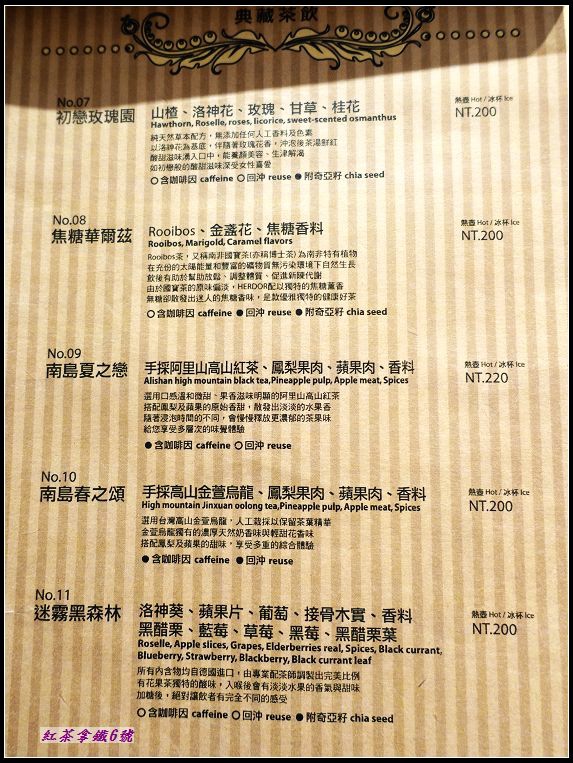 典藏茶飲
No.07
初戀玫瑰園
山楂、洛神花、玫瑰、甘草、桂花
Hawthorn, Roselle, roses, licorice, sweet-scented osmanthus
熱壺 Hot / 冰杯 Ice
NT.200
純天然草本配方，無添加任何人工香料及色素
以洛神花為基底，伴隨著玫瑰花香，沖泡後茶湯鮮紅
酸甜滋味湧入口中，能養顏美容、生津解渴
如初戀般的酸甜滋味深受女性喜愛
○ 含咖啡因 caffeine ○ 回沖 reuse ● 附奇亞籽 chia seed
No.08
焦糖華爾茲
Rooibos、金盞花、焦糖香料
Rooibos, Marigold, Caramel flavors
熱壺 Hot / 冰杯 Ice
NT.200
Rooibos茶，又稱南非國寶茶(亦稱博士茶) 為南非特有植物
在充份的太陽能量和豐富的礦物質無污染環境下自然生長
飲後有助於幫助放鬆、調整體質、促進新陳代謝
由於國寶茶的原味偏淡，HERDOR配以獨特的焦糖薰香
無糖卻散發出迷人的焦糖香味，是款優雅獨特的健康好茶
○ 含咖啡因 caffeine ● 回沖 reuse ● 附奇亞籽 chia seed
No.09
南島夏之戀
手採阿里山高山紅茶、鳳梨果肉、蘋果肉、香料
Alishan high mountain black tea,Pineapple pulp, Apple meat, Spices
熱壺 Hot / 冰杯 Ice
NT.220
選用口感溫和微甜、果香滋味明顯的阿里山高山紅茶
搭配鳳梨及蘋果的原始香甜，散發出淡淡的水果香
隨著浸泡時間的不同，會慢慢釋放更濃郁的茶果味
給您享受多層次的味覺體驗
● 含咖啡因 caffeine ○ 回沖 reuse
No.10
南島春之頌
手採高山金萱烏龍、鳳梨果肉、蘋果肉、香料
High mountain Jinxuan oolong tea,Pineapple pulp, Apple meat, Spices
熱壺 Hot / 冰杯 Ice
NT.200
選用台灣高山金萱烏龍，人工栽採以保留茶葉精華
金萱烏龍獨有的濃厚天然奶香味與輕甜花香味
搭配鳳梨及蘋果的甜味，享受多重的綜合體驗
● 含咖啡因 caffeine ● 回沖 reuse
No.11
迷霧黑森林
洛神葵、蘋果片、葡萄、接骨木實、香料
黑醋栗、藍莓、草莓、黑莓、黑醋栗葉
Roselle, Apple slices, Grapes, Elderberries real, Spices, Black currant,
Blueberry, Strawberry, Blackberry, Black currant leaf
熱壺 Hot / 冰杯 Ice
NT.200
所有內含物均自德國進口，由專業配茶師調製出完美比例
有花果茶獨特的酸味，入喉後會有淡淡水果的香氣與甜味
加糖後，絕對讓飲者有完全不同的感受
○ 含咖啡因 caffeine ○ 回沖 reuse ● 附奇亞籽 chia seed
紅茶拿鐵6號